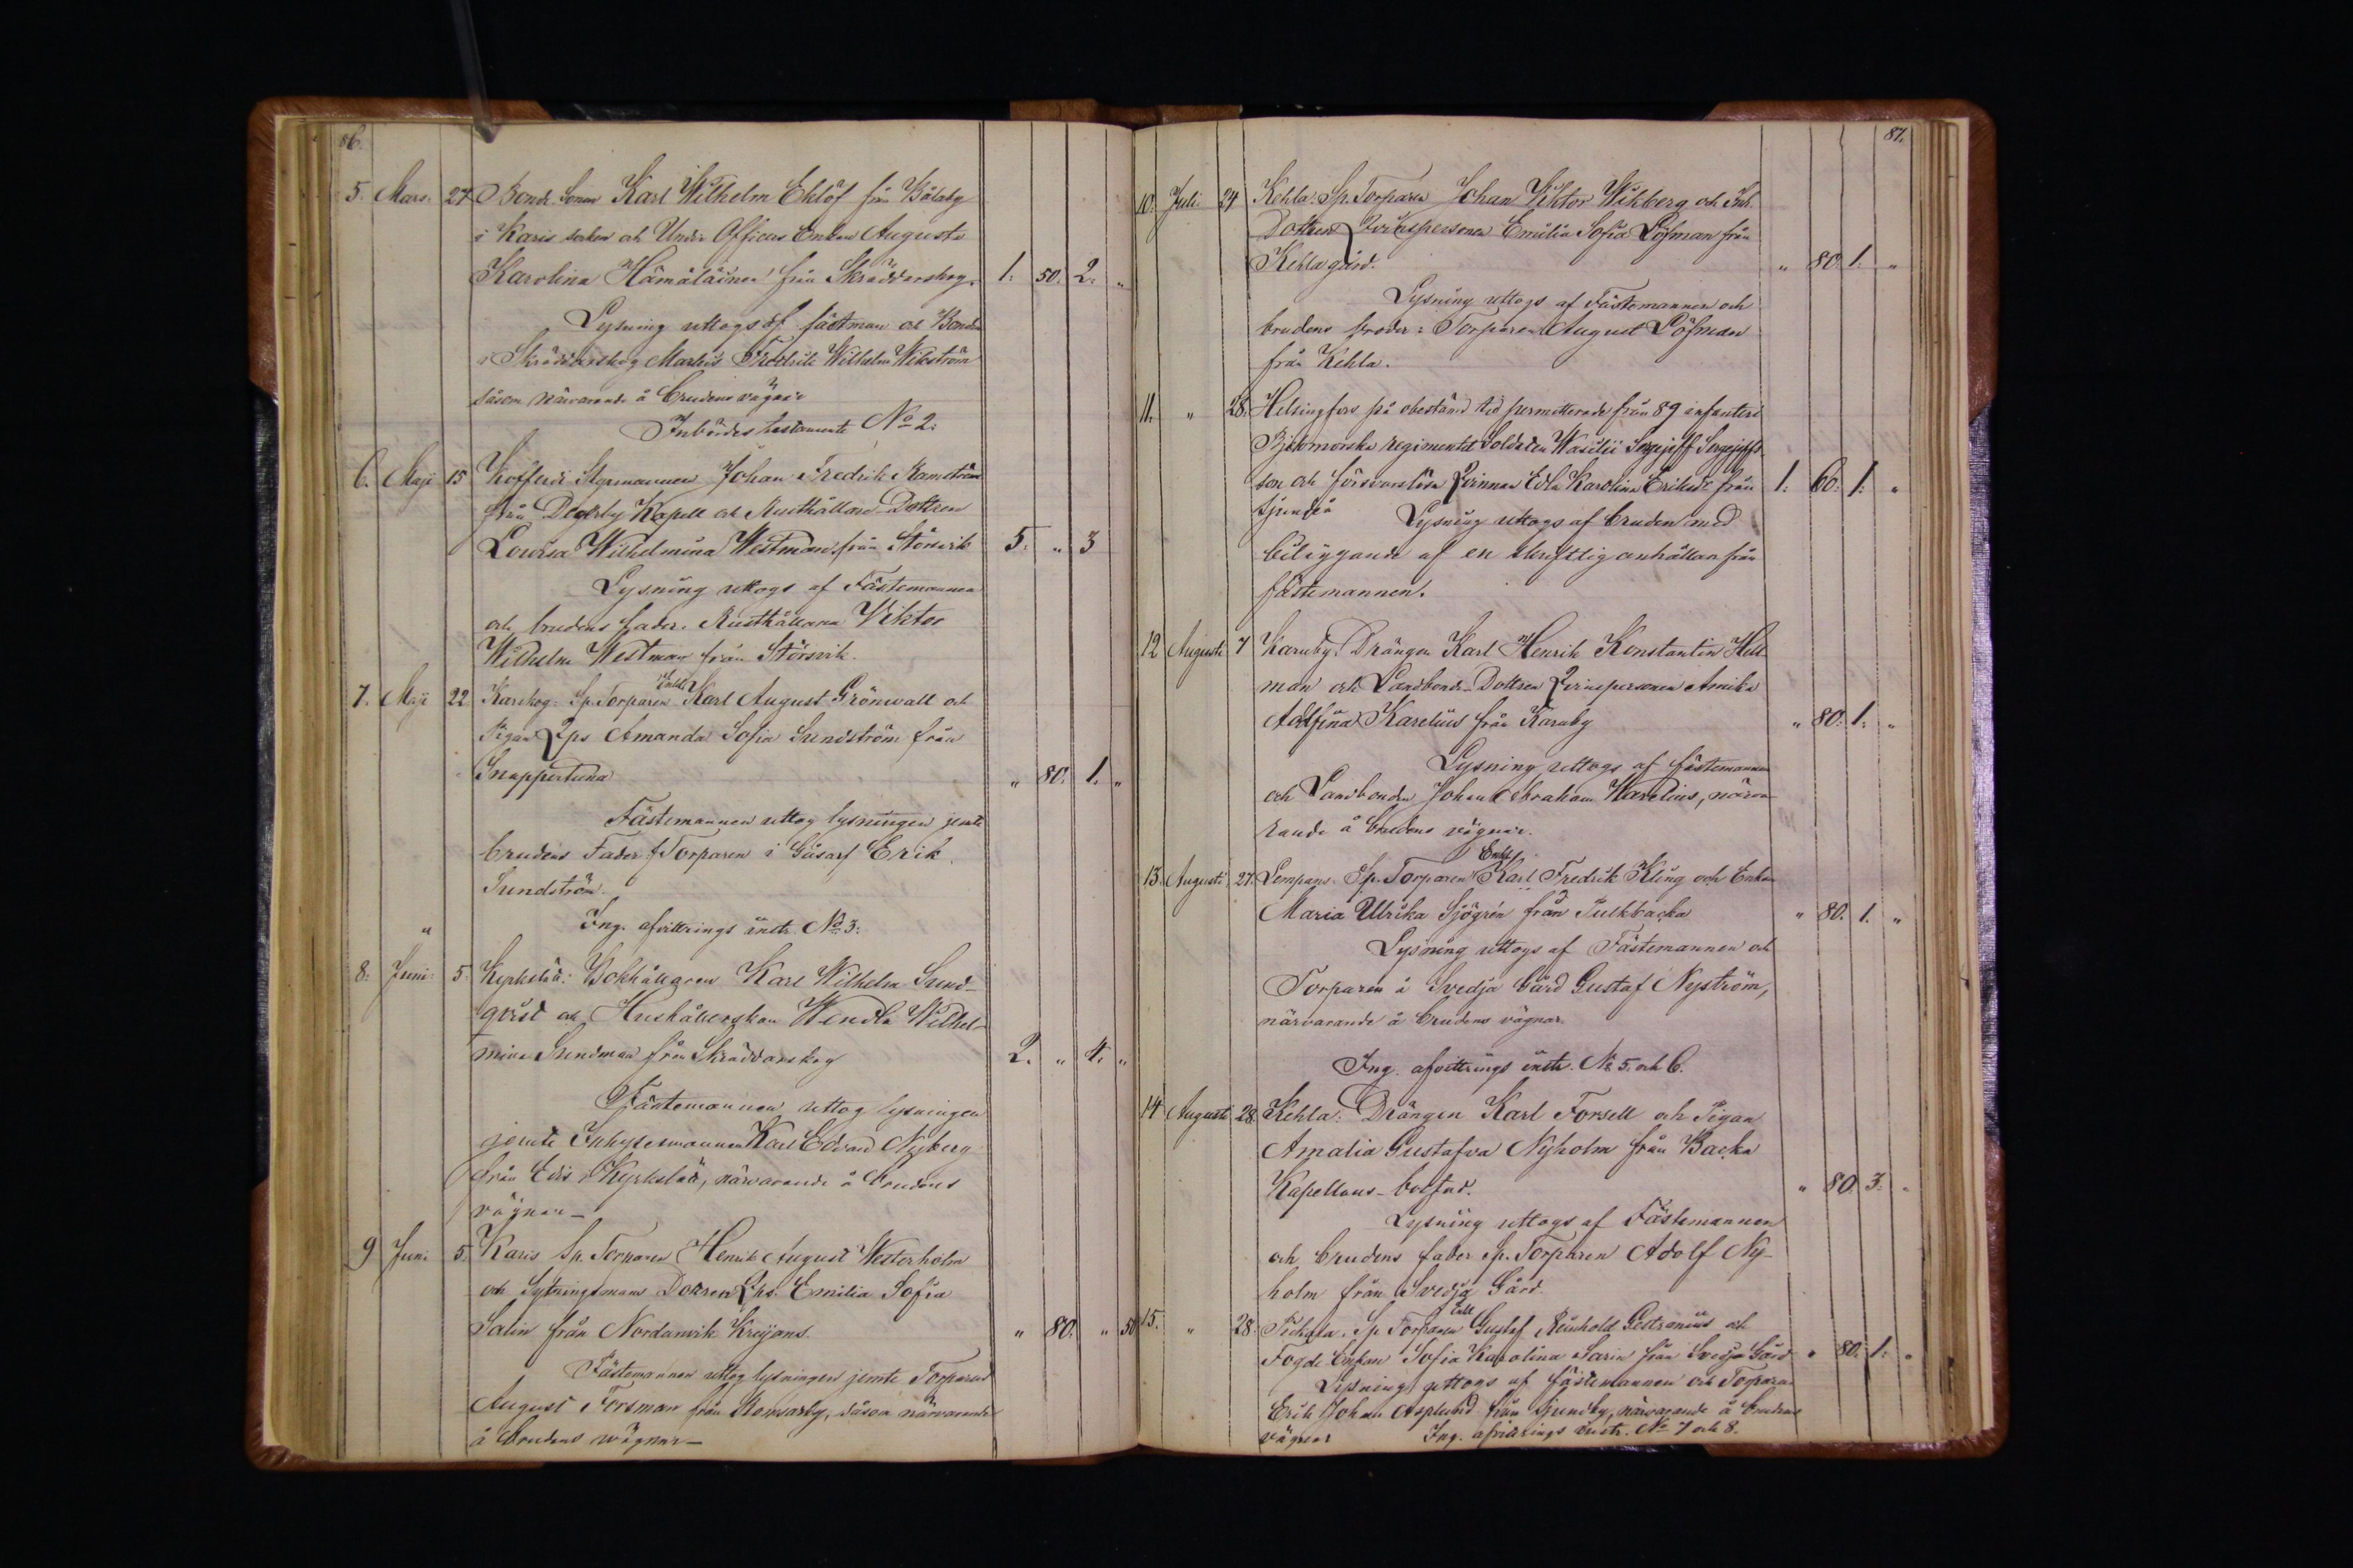 86.
5. Mars. 27. Bonde Sonen Karl Wilhelm Eklöf från Bålaby
i Karis socken och Under Officers Enkan Augusta
Karolina Hämäläinen från Skräddarskog. 1. 50. 2. "
Lysning uttogs af fästman och Bonden
i Skräddarskog Fredrik Wilhelm Wikström
såsom närvarande å brudens vägnar
Inbördes testamente No 2.
6. Maji 15 Kofferdi Styrmannen Johan Fredrik Ramström
från Degerby Kapell och Rusthållare Dottren
Lovisa Wilhelmina Westman från Störsvik 5. " 3
Lysning uttogs af Fästemannen
och brudens fader. Rusthållaren Viktor
Wilhelm Westman från Störsvik.
7. Maji 22 Karskog: Sp. Torparen Enkl. Karl August Grönwall och
Pigan Qps Amanda Sofia Sundström från
Snappertuna " 80. 1. "
Fästemannen uttog lysningen jemte
brudens Fader Torparen i Gåsarf Erik
Sundström.
" Ing. afvittrings instr. No 3.
8. Juni 5. Kyrkslätt: Bokhållaren Karl Wilhelm Sund-
qvist och Hushållerskan Wendla Wilhel-
mina Sundman från Skräddarskog 2. " 4. "
Fästemannen uttog lysningen
jemte Inhysesmannen Karl Edvard Nyberg
från Edis i Kyrkslätt, närvarande å brudens
vägnar—
9 Juni 5. Karis Sp. Torparen Henrik August Westerholm
och Sytningsmans Dottren Qps. Emilia Sofia
Salin från Nordanvik Kreijans. " 80. " 50
Fästemannen uttog lysningen jemte Torparen
August Forsman från, såsom närvarande
å brudens wägnar—
87.
10. Juli 24 Kehla: Sp. Torparen Johan Viktor Wikberg och Inh.
Dottren Qvinspersonen Emilia Sofia Löfman från
Kehla gård. " 80. 1. "
Lysning uttogs af Fästemannen och
brudens broder: Torparen August Löfman
från Kehla.
11. " 28. Helsingfors på obestämd tid permitterade från 89 infanteri
Bjelomorska regimentet Soldaten Wasilii Sergejeff Sergejeffs-
son och försvarslösa Qvinnan Edla Karolina Eriksdr från 1. 60. 1. "
Sjundeå Lysning uttogs af bruden med
biliggande af en skriftlig anhållan från
fästemannen.
12 Augusti 7 Karuby. Drängen Karl Henrik Konstantin Hell-
man och Landbonde-Dottren Qvinspersonen Amika
Adolfina Karelius från Karuby " 80. 1. "
Lysning uttogs af fästemannen
och Landbonden Johan Abraham Karelius, närva-
rande å brudens vägnar.
13. Augusti 27. Lempans. Sp. Torparen Enkl. Karl Fredrik Kling och Enkan
Maria Ulrika Sjögrén från Purkbacka " 80. 1. "
Lysning uttogs af Fästemannen och
Torparen å Svedja Gård Gustaf Nyström,
närvarande å brudens vägnar.
Ing. afvittrings instr. No 5. och 6.
14 Augusti 28. Kehla: Drängen Karl Forsell och Pigan
Amalia Gustafva Nyholm från Backa
Kapellans-bolstad. " 80. 3. "
Lysning uttogs af Fästemannen
och brudens fader Sp. Torparen Adolf Ny-
holm från Svedja Gård.
15. " 28. Pickala. Sp. Torparen Enkl. Gustaf Reinhold Gestranius och
Fogde Enkan Sofia Karolina Sarin från Svedja Gård " 80. 1. "
Lysning uttogs af fästemannen och Torparen
Erik Johan Asplund från Sjundby, närvarande å brudens
vägnar Ing. afvittrings instr. No 7 och 8.